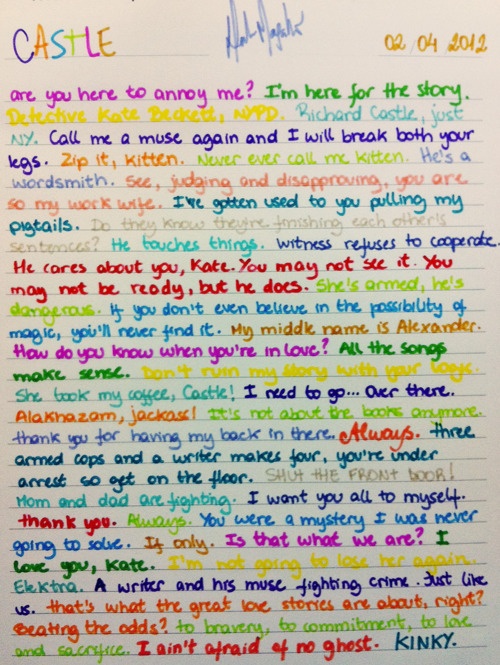 CASTLE 02 04 2012
are you here to annoy me? I'm here for the story.
Detective Kate Beckett, NYPD. Richard Castle, just
NY. Call me a muse again and I will break both your
legs. Zip it, kitten. Never ever call me kitten. He's a
wordsmith. See, judging and disapproving, you are
so my work wife. I've gotten used to you pulling my
pigtails. Do they know they're finishing each other's
sentences? He touches things. witness refuses to cooperate.
He cares about you, Kate. You may not see it. You
may not be ready, but he does. She's armed, he's
dangerous. If you don't even believe in the possibility of
magic, you'll never find it. My middle name is Alexander.
How do you know when you're in love? All the songs
make sense. Don't ruin my story with your logic.
She took my coffee, Castle! I need to go... Over there.
Alakhazam, jackass! It's not about the books anymore.
thank you for having my back in there. Always. three
armed cops and a writer makes four, you're under
arrest so get on the floor. SHUT THE FRONT DOOR!
Mom and dad are fighting. I want you all to myself.
thank you. Always. You were a mystery I was never
going to solve. If only. Is that what we are? I
love you, Kate. I'm not going to lose her again.
Elektra. A writer and his muse fighting crime. Just like
us. that's what the great love stories are about, right?
Beating the odds? to bravery, to commitment, to love
and sacrifice. I ain't afraid of no ghost. KINKY.